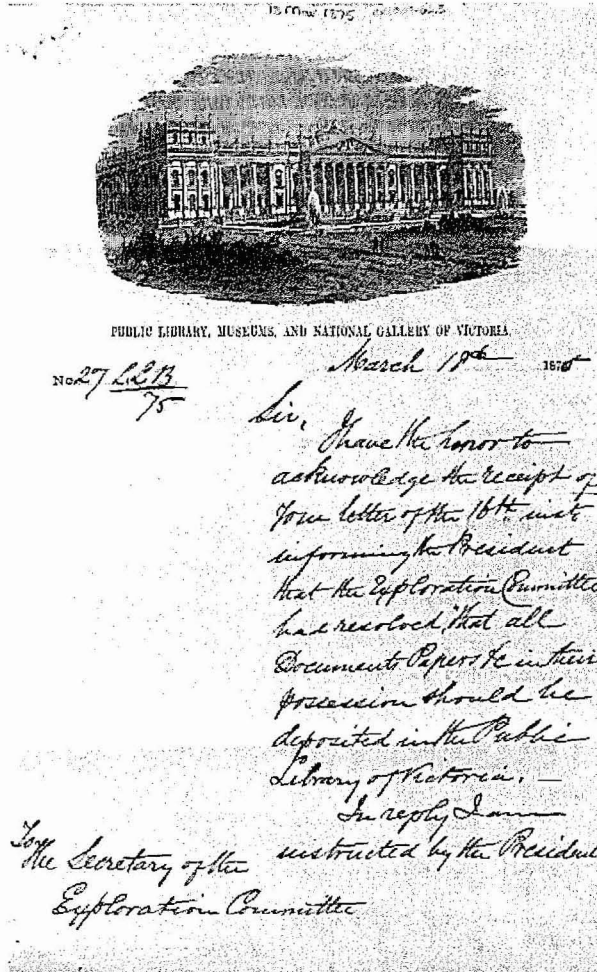 18 Mar 1875
PUBLIC LIBRARY, MUSEUMS, AND NATIONAL GALLERY OF VICTORIA
March 18th 1875
No 27 LLB
75
Sir,
I have the honor to
acknowledge the receipt of
Your letter of the 16th inst.
informing the President
that the Exploration Committee
had resolved, "that all
Documents Papers &c in their
possession should be
deposited in the Public
Library of Victoria. —
In reply I am
instructed by the President
To
The Secretary of the
Exploration Committee